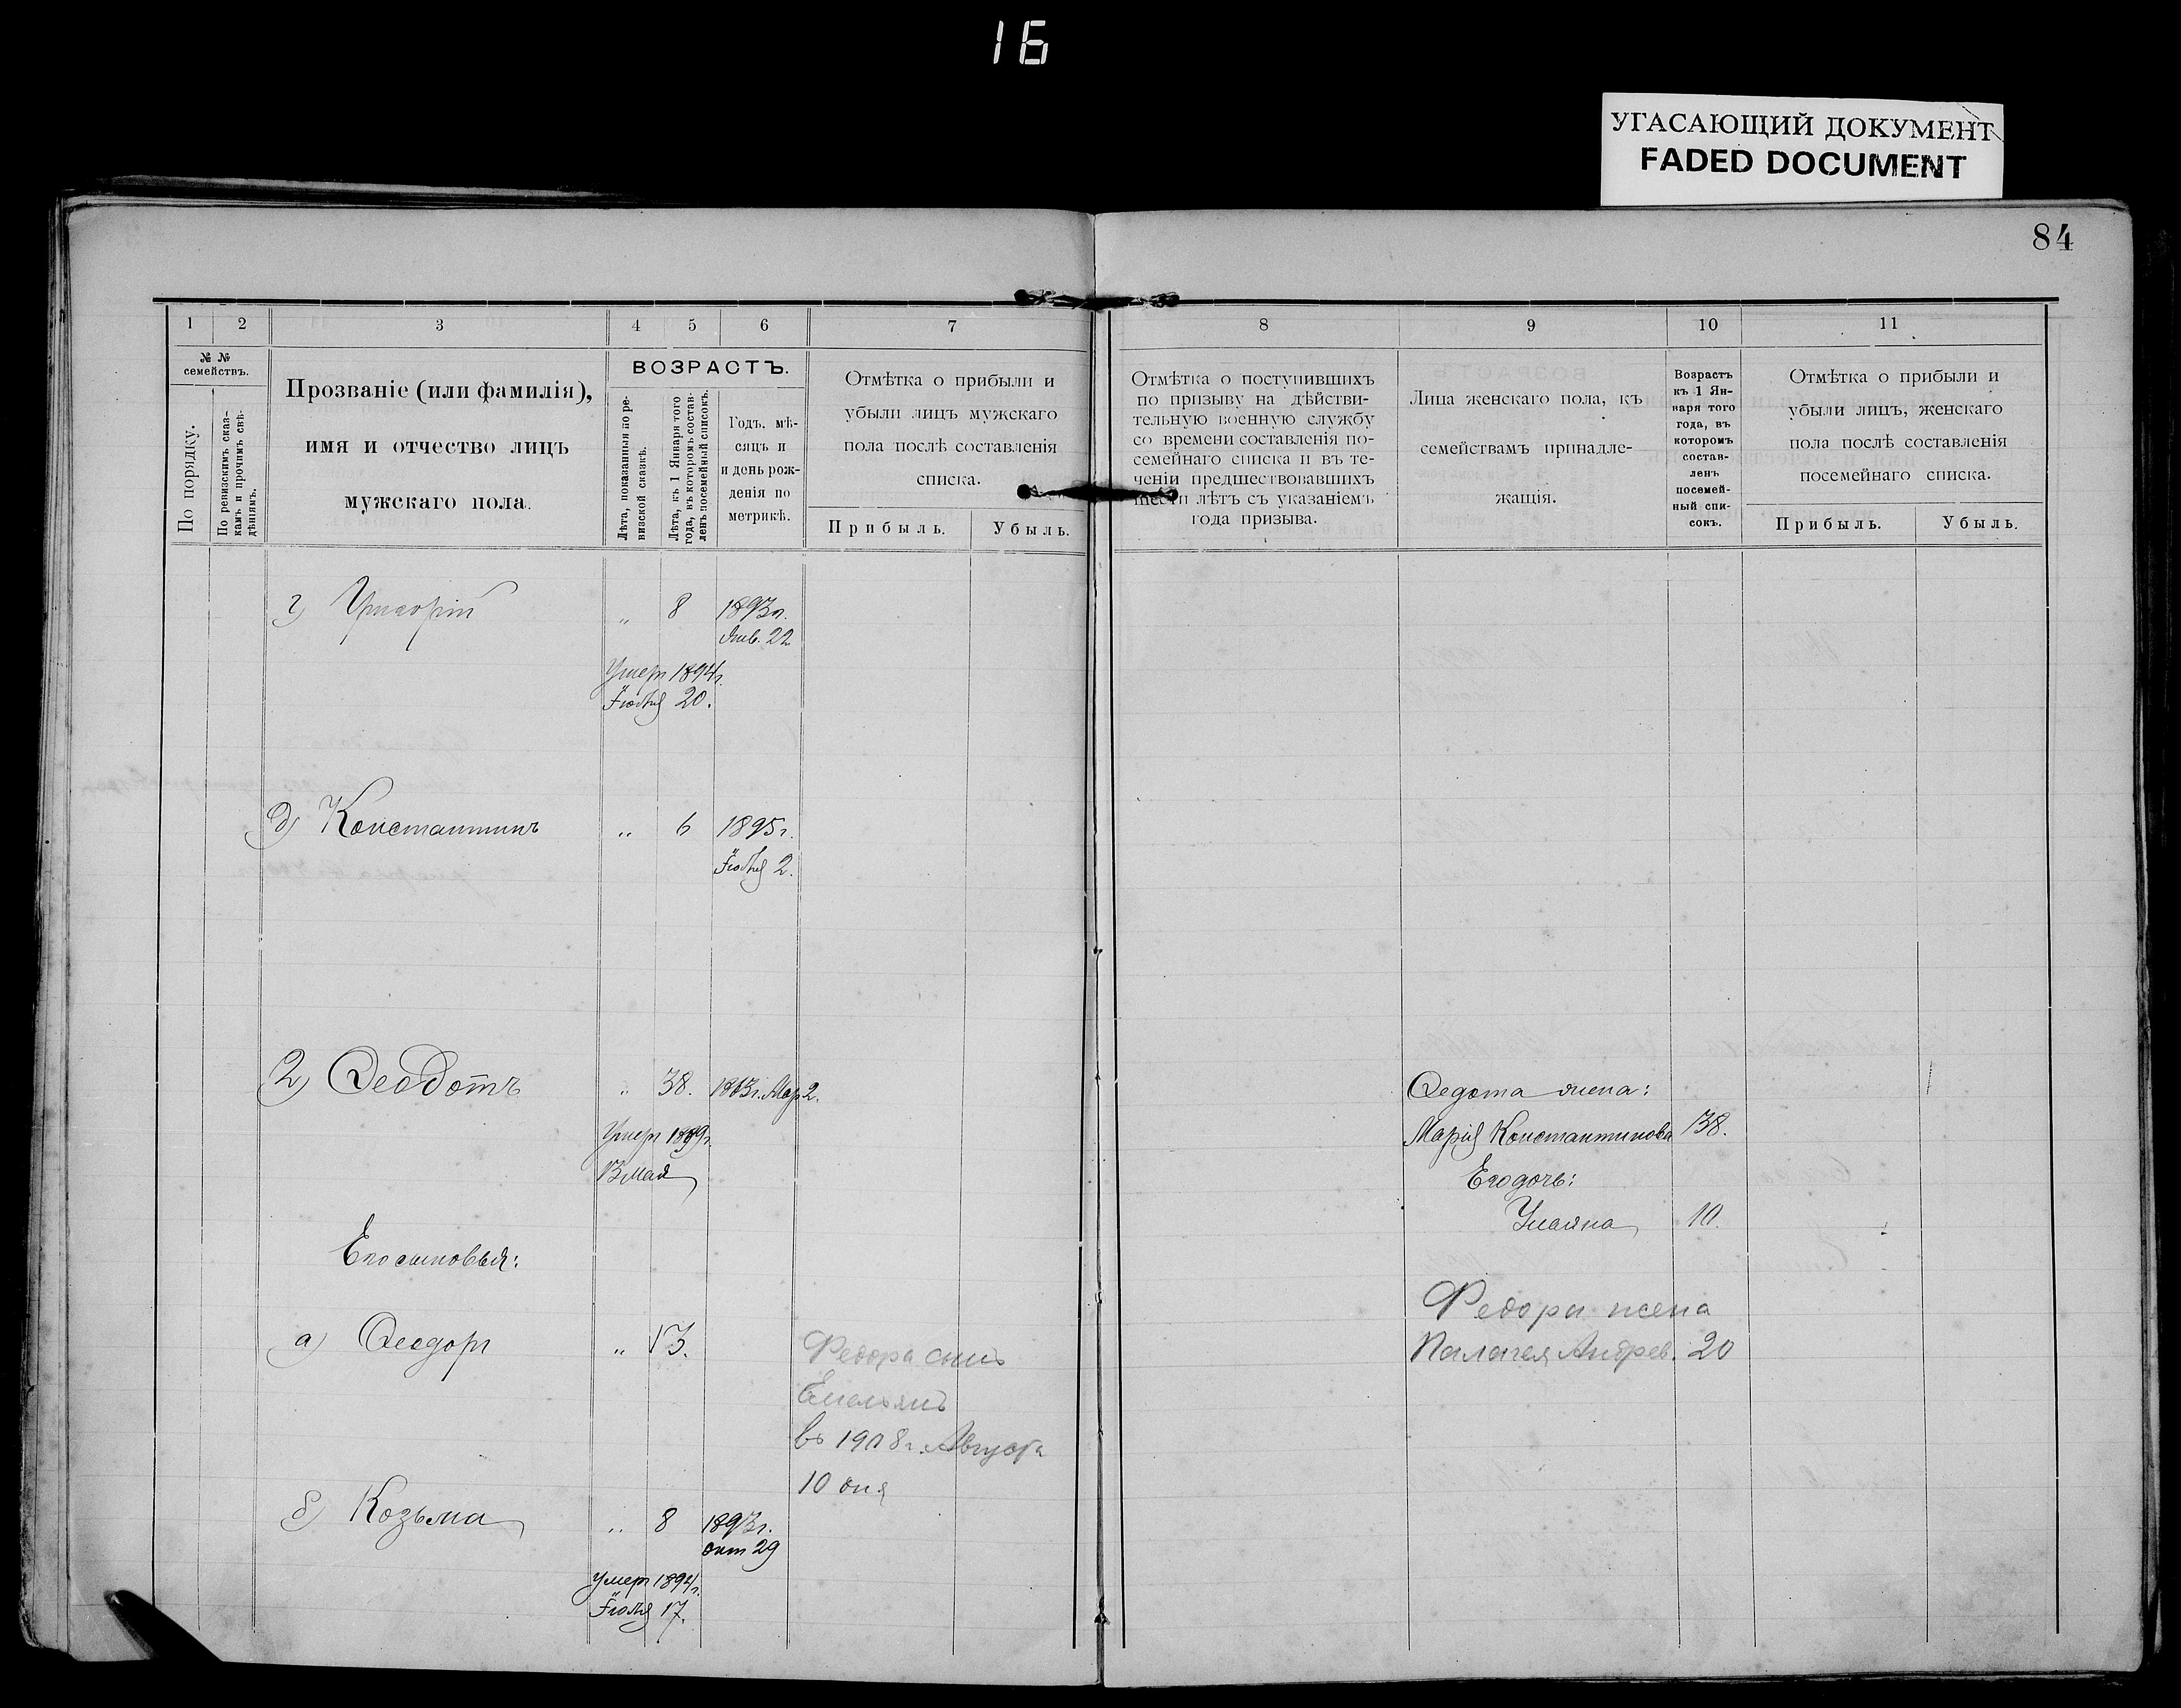 16
УГАСАЮЩИЙ ДОКУМЕНТ
FADED DOCUMENT
84
1 2 3 4 5 6 7 8 9 10 11
№ №
семействъ.
По порядку.
По ревизскимъ сказ-
камъ и прочимъ свѣ-
дѣніямъ.
Прозваніе (или фамилія),
имя и отчество лицъ
мужскаго пола.
ВОЗРАСТЪ.
Лѣта, показанныя по ре-
визской сказкѣ.
Лѣта, къ 1 Января того
года, въ которомъ состав-
ленъ посемейный списокъ.
Годъ, мѣ-
сяцъ и
и день рож-
денія по
метрикѣ.
Отмѣтка о прибыли и
убыли лицъ мужскаго
пола послѣ составленія
списка.
Прибыль. Убыль.
Отмѣтка о поступившихъ
по призыву на дѣйстви-
тельную военную службу
со времени составленія по-
семейнаго списка и въ те-
ченіи предшествовавшихъ
шести лѣтъ съ указаніемъ
года призыва.
Лица женскаго пола, къ
семействамъ принадле-
жащія.
Возрастъ
къ 1 Ян-
варя того
года, въ
которомъ
состав-
ленъ
посемей-
ный спи-
сокъ.
Отмѣтка о прибыли и
убыли лицъ, женскаго
пола послѣ составленія
посемейнаго списка.
Прибыль. Убыль.
г) Григорій " 8 1893 г.
Янв. 22
Умер 1894 г.
Іюля 20.
д) Константинъ " 6 1895 г.
Іюля 2.
2) Ѳеодотъ " 38. 1863 г. Мар 2.
Умер 1899 г.
13 мая
Его сыновья:
а) Ѳеодор " 13.
Федора сынъ
Емельянъ
въ 1908 г. Августа
10 дня
б) Козьма " 8 1893 г.
окт 29
Умер 1894 г.
Іюля 17.
Ѳедота жена:
Марія Константинова 38.
Его дочь:
Ульяна 10.
Федора жена
Палагея Андрев. 20